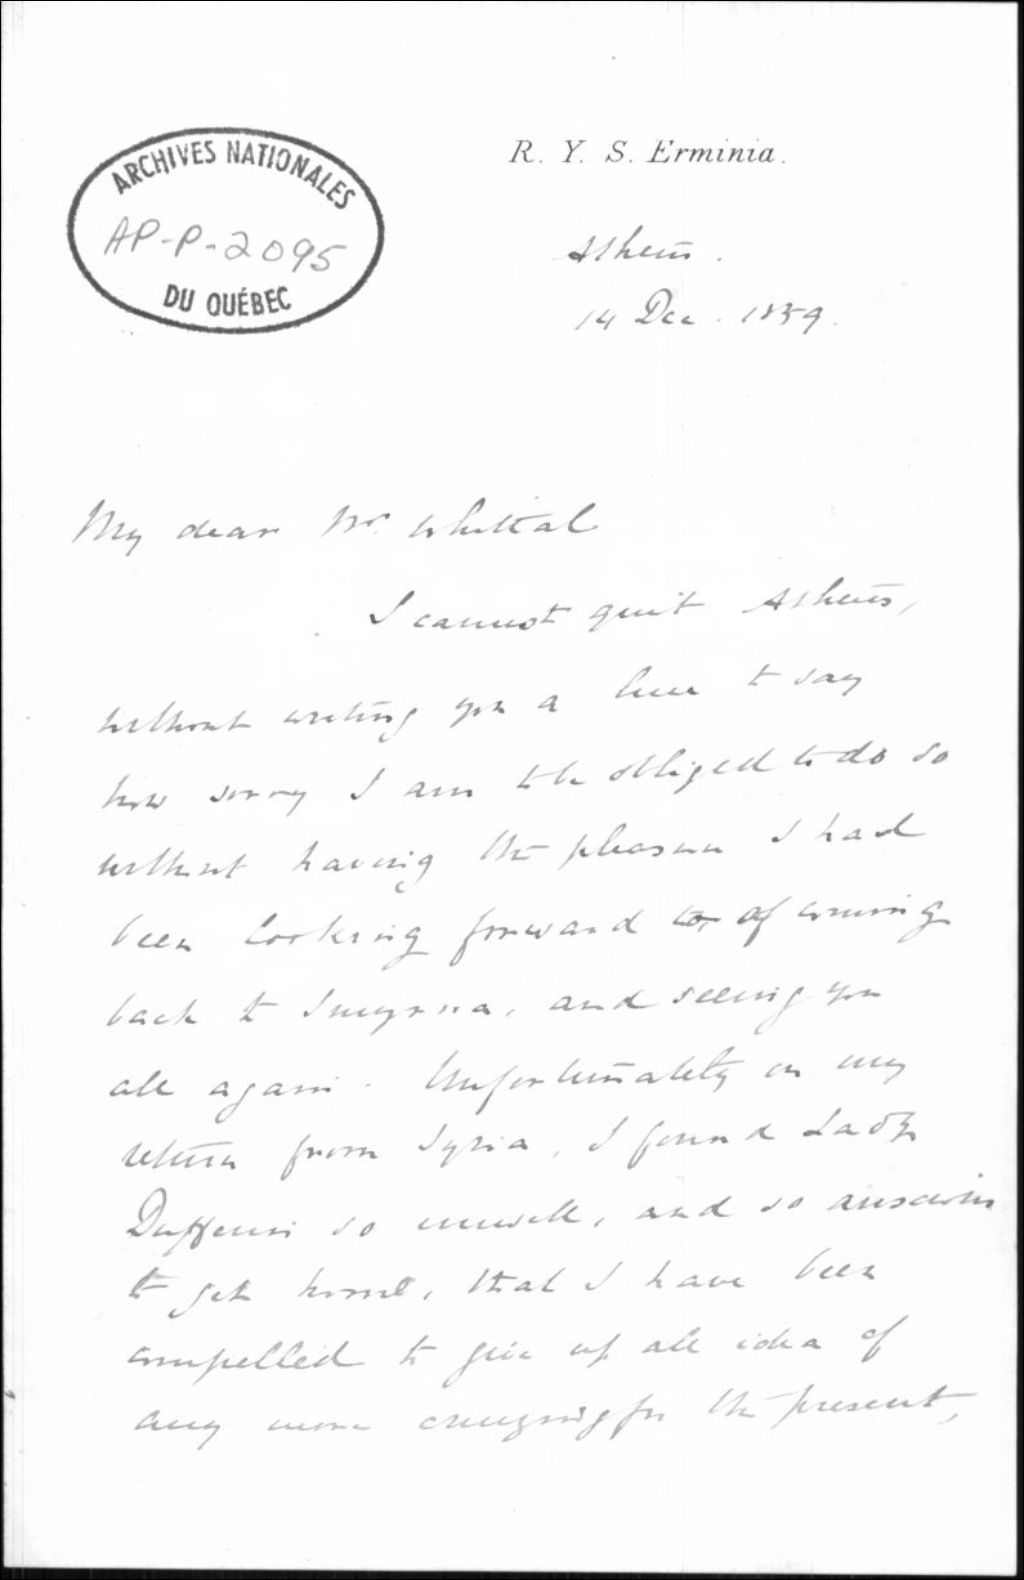 ARCHIVES NATIONALES
AP-P-2095
DU QUÉBEC
R. Y. S. Erminia.
Athens.
14 Dec. 1859.
My dear Mr. Whittal
I cannot quit Athens,
without writing you a line to say
how sorry I am to be obliged to do so
without having the pleasure I had
been looking forward to, of coming
back to Smyrna, and seeing you
all again. Unfortunately on my
return from Syria, I found Lady
Dufferin so unwell, and so anxious
to get home, that I have been
compelled to give up all idea of
any more cruizing for the present,